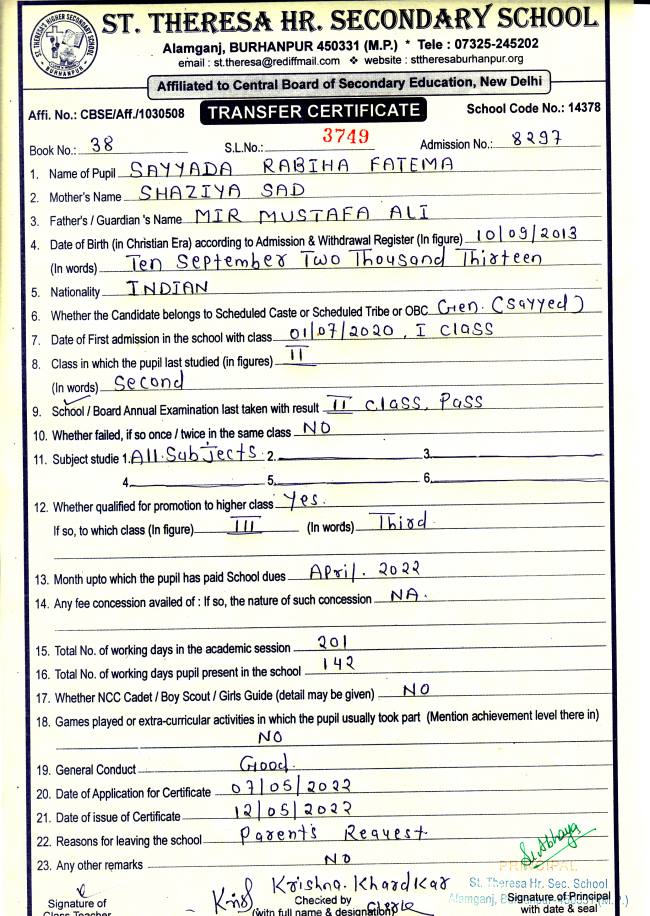 ST. THERESA'S HIGHER SECONDARY SCHOOL
BURHANPUR
ST. THERESA HR. SECONDARY SCHOOL
Alamganj, BURHANPUR 450331 (M.P.) * Tele : 07325-245202
email : st.theresa@rediffmail.com ❖ website : sttheresaburhanpur.org
Affiliated to Central Board of Secondary Education, New Delhi
Affi. No.: CBSE/Aff./1030508 TRANSFER CERTIFICATE School Code No.: 14378
Book No.: 38 S.L.No.: 3749 Admission No.: 8297
1. Name of Pupil SAYYADA RABIHA FATEMA
2. Mother's Name SHAZIYA SAD
3. Father's / Guardian 's Name MIR MUSTAFA ALI
4. Date of Birth (in Christian Era) according to Admission & Withdrawal Register (In figure) 10/09/2013
(In words) Ten September Two Thousand Thirteen
5. Nationality INDIAN
6. Whether the Candidate belongs to Scheduled Caste or Scheduled Tribe or OBC Gen. (Sayyed)
7. Date of First admission in the school with class 01/07/2020, I Class
8. Class in which the pupil last studied (in figures) II
(In words) Second
9. School / Board Annual Examination last taken with result II Class, Pass
10. Whether failed, if so once / twice in the same class NO
11. Subject studie 1. All Subjects 2. 3.
4. 5. 6.
12. Whether qualified for promotion to higher class Yes.
If so, to which class (In figure) III (In words) Third.
13. Month upto which the pupil has paid School dues April. 2022
14. Any fee concession availed of : If so, the nature of such concession NA.
15. Total No. of working days in the academic session 201
16. Total No. of working days pupil present in the school 142
17. Whether NCC Cadet / Boy Scout / Girls Guide (detail may be given) NO
18. Games played or extra-curricular activities in which the pupil usually took part (Mention achievement level there in)
NO
19. General Conduct Good.
20. Date of Application for Certificate 07/05/2022
21. Date of issue of Certificate 12/05/2022
22. Reasons for leaving the school Parents Request.
23. Any other remarks NO
Sr. Abhaya
PRINCIPAL
Krishna. Khardkar
St. Theresa Hr. Sec. School
Signature of Checked by Clerk Alamganj, Signature of Principal
Class Teacher (with full name & designation) with date & seal